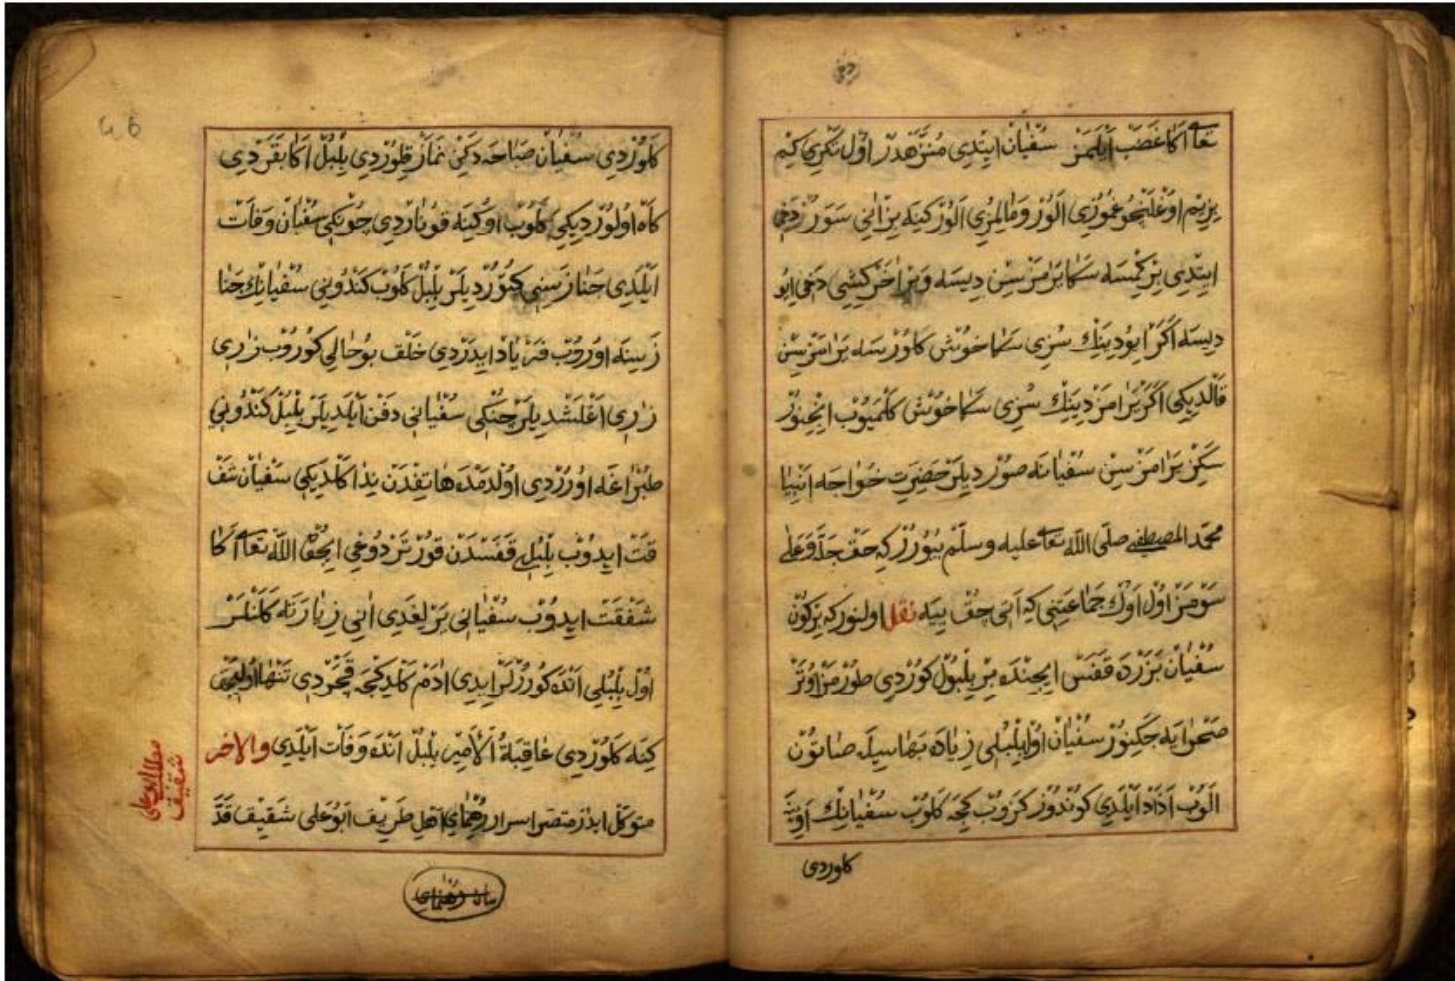 تعالى اكا غضب ايلمز سفيان ايتدى منزهدر اول تكرى كم
بزيم اوغلنجوغموزى الور و مالمزى الور كينه بز انى سورز دخى
ايتدى بر كمسه سكا يرامز سن ديسه و بر اخر كيشى دخى ايو
ديسه اكر ايو دينك سزى سكا خوش كلورسه يرامز سن
قالديكى اكر يرامز دينك سزى سكا خوش كلميوب انجنور
سكن يرامز سن سفيانه صورديلر حضرت خواجه انبيا
محمد المصطفى صلى الله تعالى عليه وسلم بيورر كه حق جل و على
سومز اول اوك جماعتنى كه انى چوق ييه نقل اولنور كه بركون
سفيان بزرده قفس ايچنده بر بلبول كوردى طورمز اوتر
صحرايه چكنور سفيان اول بلبلى زياده بها سيله صاتون
الوب ازاد ايلدى كوندوز كزوب كجه كلوب سفيانك اوينه
كلوردى
كلوردى سفيان صباحه دكين نماز قلوردى بلبل اكا بقردى
كاه اولوردىكى كلوب اوكينه قوناردى چونكى سفيان وفات
ايلدى جنازسنى كتورديلر بلبل كلوب كندونى سفيانك جنا
زسينه اوروب فرياد ايدردى خلق بو حالى كوروب زارى
زارى اغلشديلر چنكى سفيانى دفن ايلديلر بلبل كندونى
طبراغه اوردى اولدمده هاتفدن ندا كلديكى سفيان شف
قت ايدوب بلبلى قفسدن قورتردوغى ايچون الله تعالى اكا
شفقت ايدوب سفيانى يرلغدى انى زيارته كلنلر
اول بلبلى انده كوررلر ايدى ادم كلدكچه قچردى تنها اوليجق
كينه كلوردى عاقبة الامر بلبل انده وفات ايلدى والاخر
متوكل ابرار متصرا اسرار رهنماى اهل طريق ابو على شقيق قد